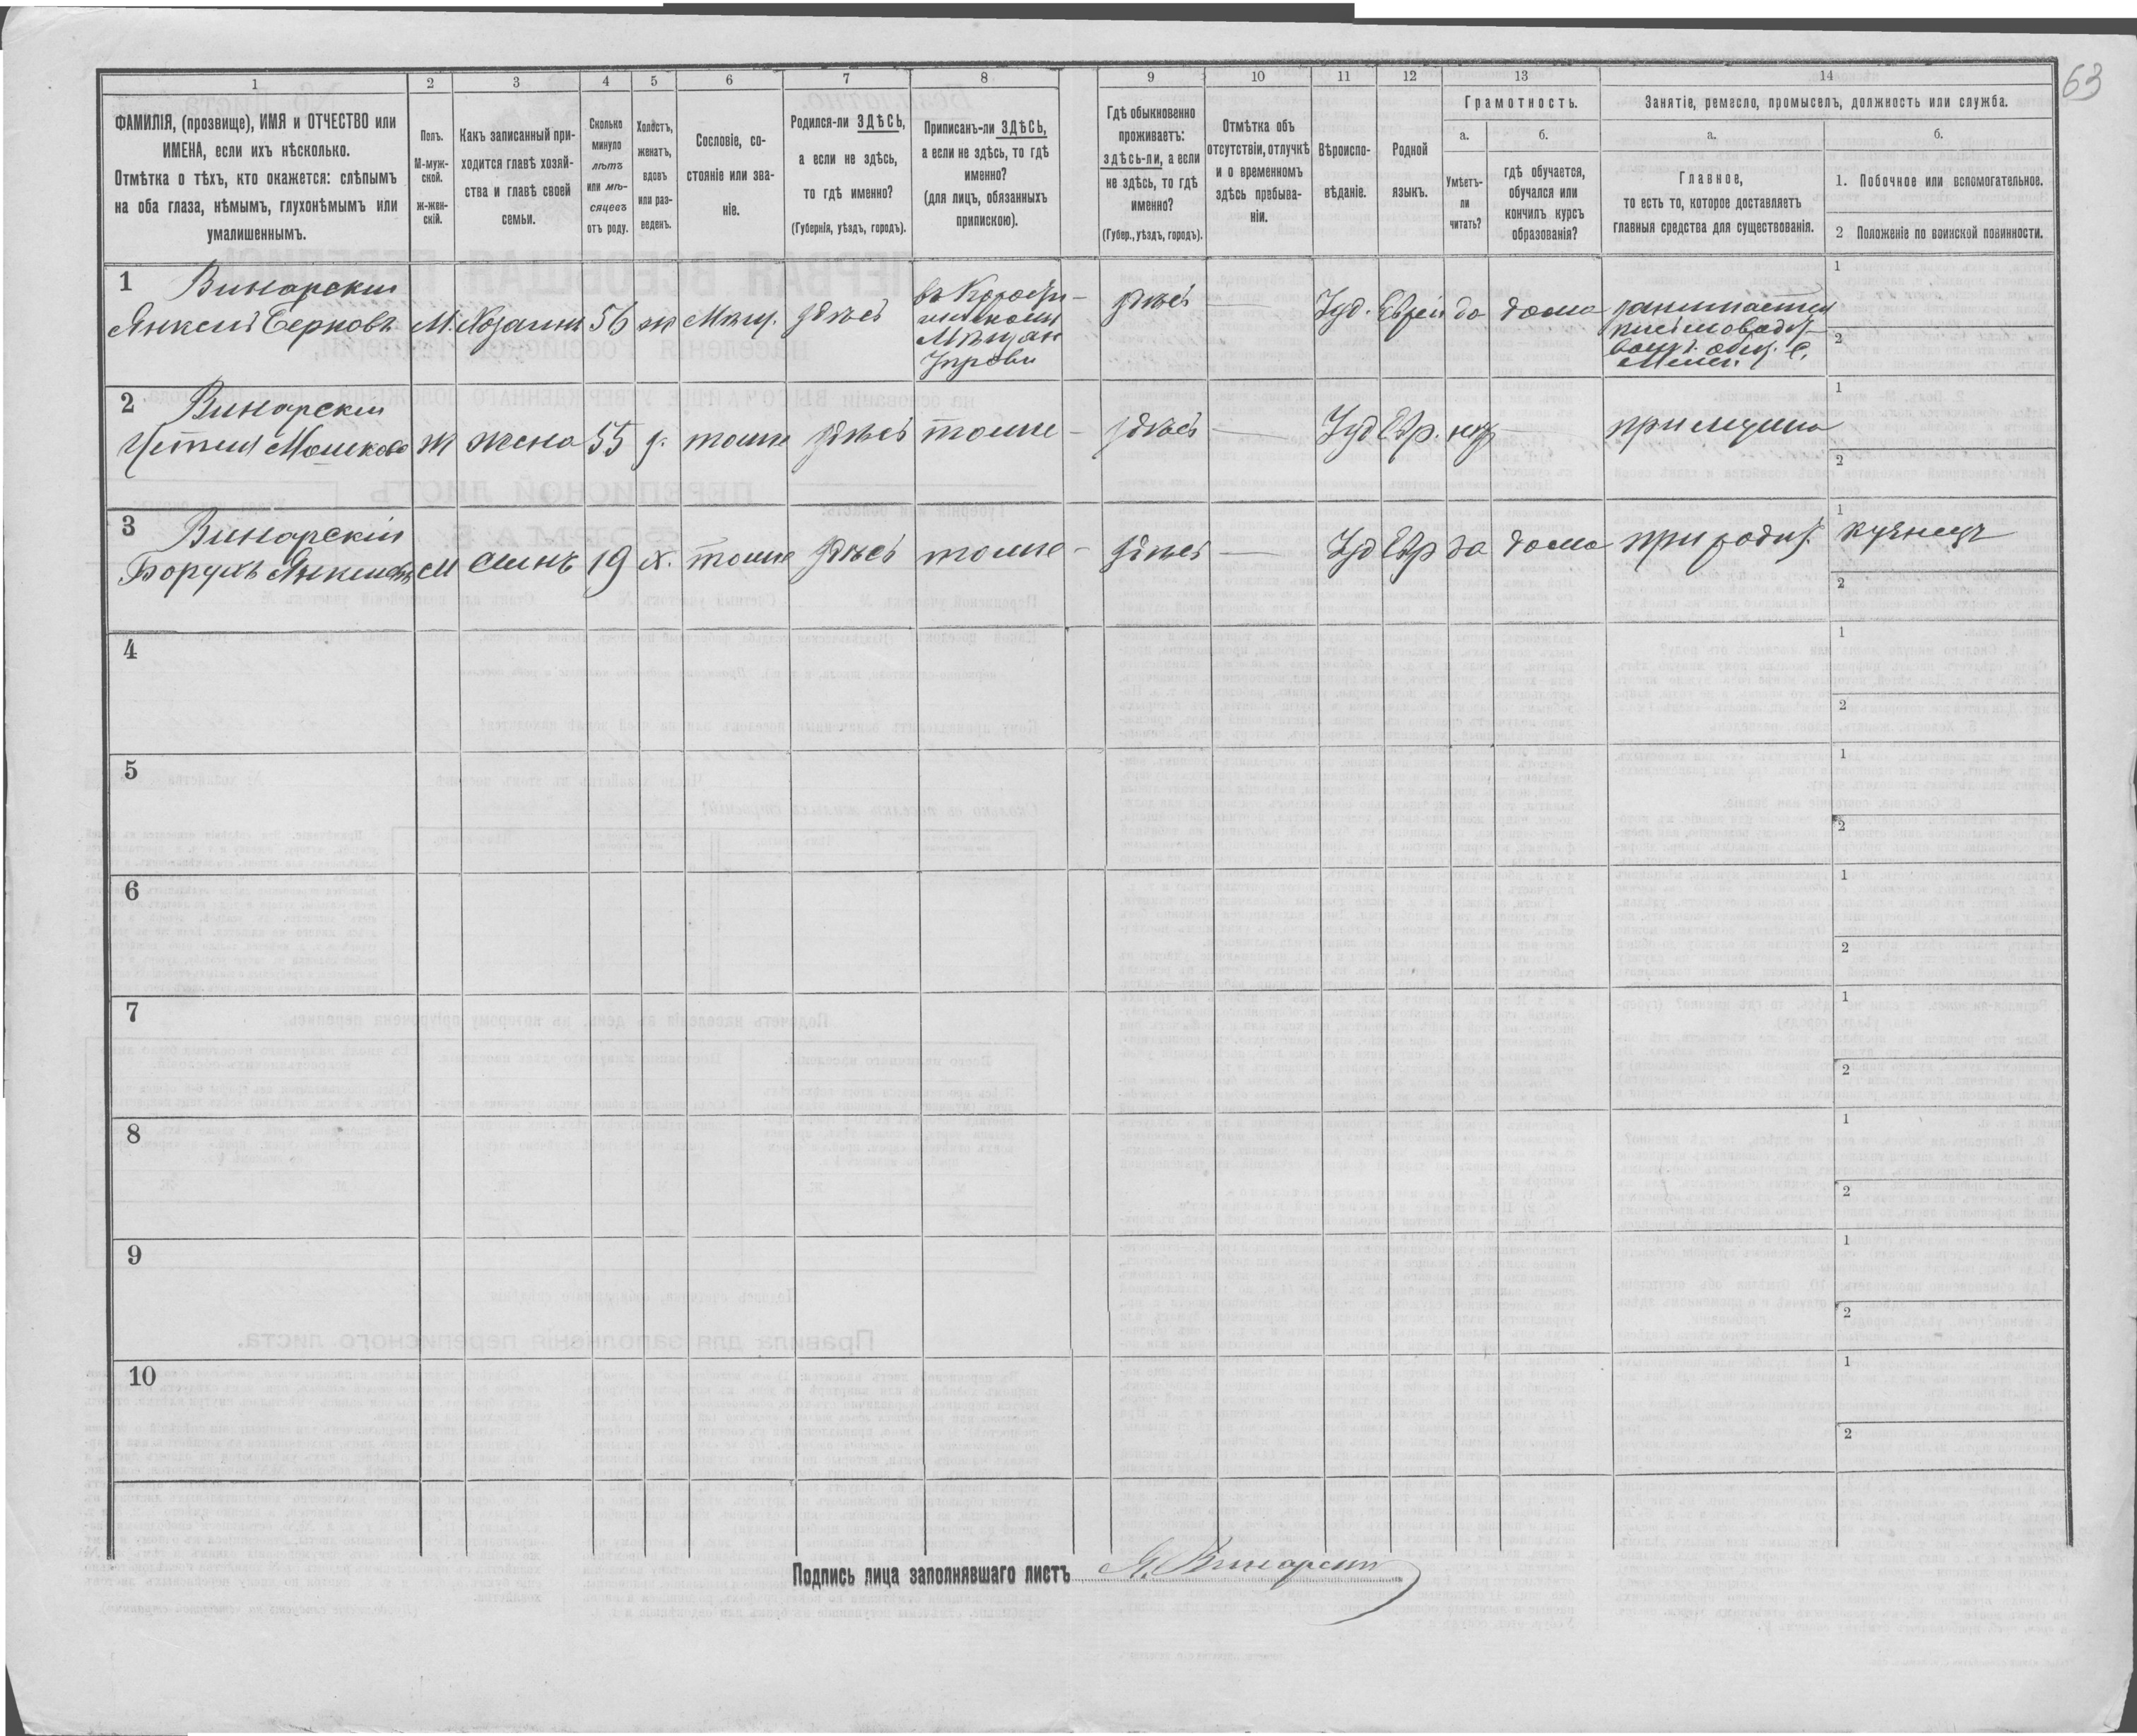 63
1 2 3 4 5 6 7 8 9 10 11 12 13 14
ФАМИЛІЯ, (прозвище), ИМЯ и ОТЧЕСТВО или
ИМЕНА, если ихъ нѣсколько.
Отмѣтка о тѣхъ, кто окажется: слѣпымъ
на оба глаза, нѣмымъ, глухонѣмымъ или
умалишеннымъ.
Полъ.
М-муж-
ской.
ж-жен-
скій.
Какъ записанный при-
ходится главѣ хозяй-
ства и главѣ своей
семьи.
Сколько
минуло
лѣтъ
или мѣ-
сяцевъ
отъ роду.
Холостъ,
женатъ,
вдовъ
или раз-
веденъ.
Сословіе, со-
стояніе или зва-
ніе.
Родился-ли ЗДѢСЬ,
а если не здѣсь,
то гдѣ именно?
(Губернія, уѣздъ, городъ).
Приписанъ-ли ЗДѢСЬ,
а если не здѣсь, то гдѣ
именно?
(для лицъ, обязанныхъ
припискою).
Гдѣ обыкновенно
проживаетъ:
здѣсь-ли, а если
не здѣсь, то гдѣ
именно?
(Губер., уѣздъ, городъ).
Отмѣтка объ
отсутствіи, отлучкѣ
и о временномъ
здѣсь пребыва-
ніи.
Вѣроиспо-
вѣданіе.
Родной
языкъ.
Грамотность.
а. б.
Умѣетъ-
ли
читать?
гдѣ обучается,
обучался или
кончилъ курсъ
образованія?
Занятіе, ремесло, промыселъ, должность или служба.
а. б.
Главное,
то есть то, которое доставляетъ
главныя средства для существованія.
1. Побочное или вспомогательное.
2 Положеніе по воинской повинности.
1 Винарскій
Янкель Берковъ М. Хозяинъ 56 ж Мѣщ. здѣсь
Мѣщан
Управы
здѣсь — Іуд. Еврей да дома занимается
1
2
2 Винарскій
Мошкова Ж жена 55 з. тоже здѣсь тоже — здѣсь — Іуд Евр. нѣт — при мужѣ
1
2
3 Винарскій
Борухъ Янкелевъ М сынъ 19 х. тоже здѣсь тоже — здѣсь — Іуд Евр да дома при родит. кузнецъ
1
2
4 1
2
5 1
2
6 1
2
7 1
2
8 1
2
9 1
2
10 1
2
Подпись лица заполнявшаго листъ Я. Винарскій